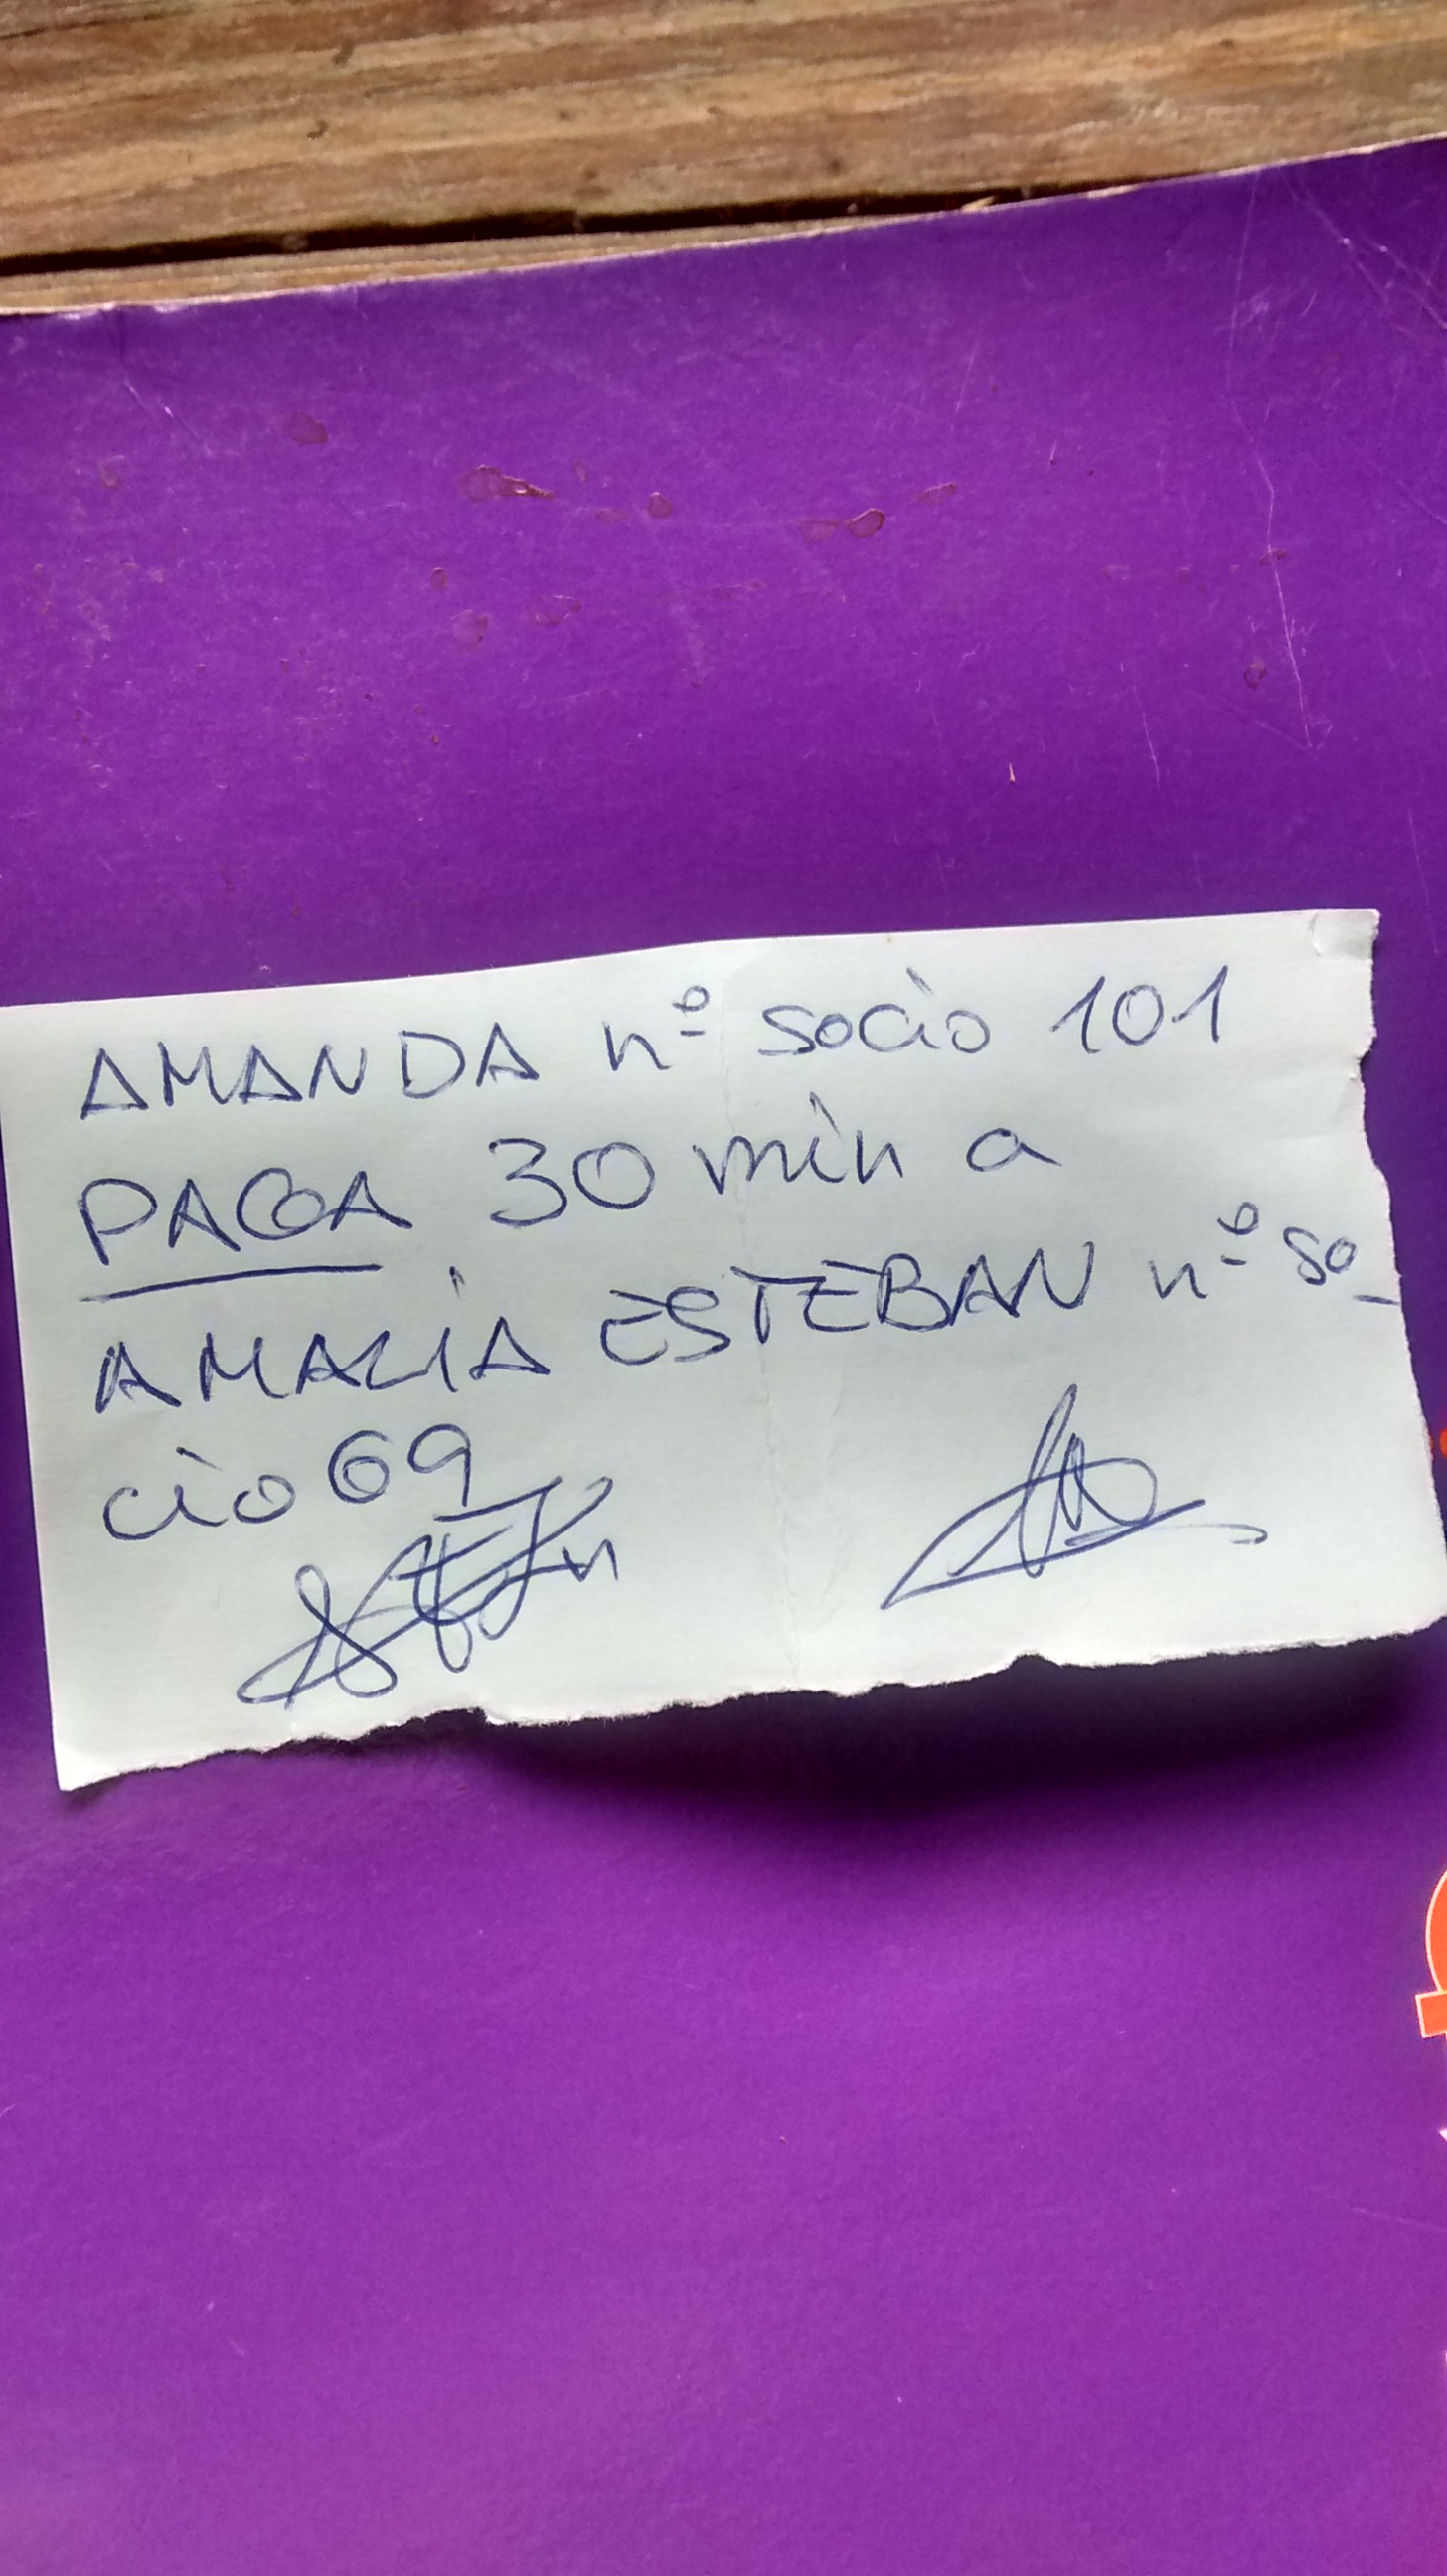 AMANDA nº socio 101
PAGA 30 min a
AMALIA ESTEBAN nº so_
cio 69